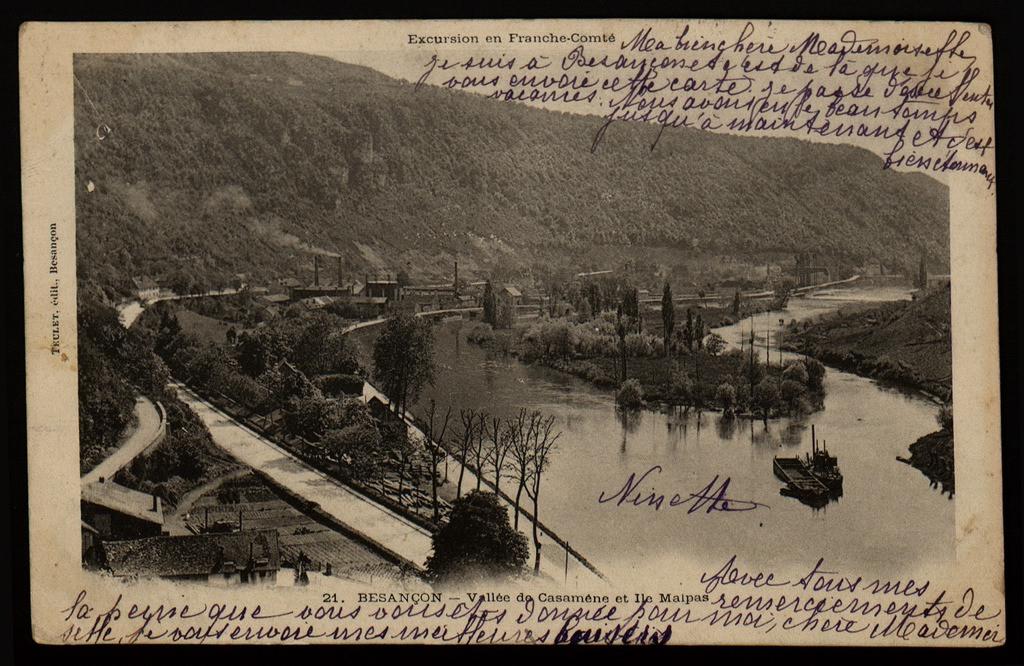 Excursion en Franche-Comté
Ma bien chère Mademoiselle,
je suis à Besançon et c'est de là que je
vous envoie cette carte. Je passe d'excellentes
vacances. Nous avons eu le beau temps
jusqu'à maintenant et c'est
bien étonnant
TEULET, édit., Besançon
Ninette
21. BESANÇON — Vallée de Casamène et Ile Malpas
Avec tous mes
remerciements de
la peine que vous vous êtes donnée pour moi, chère Mademoi
selle, je vous envoie mes meilleurs baisers